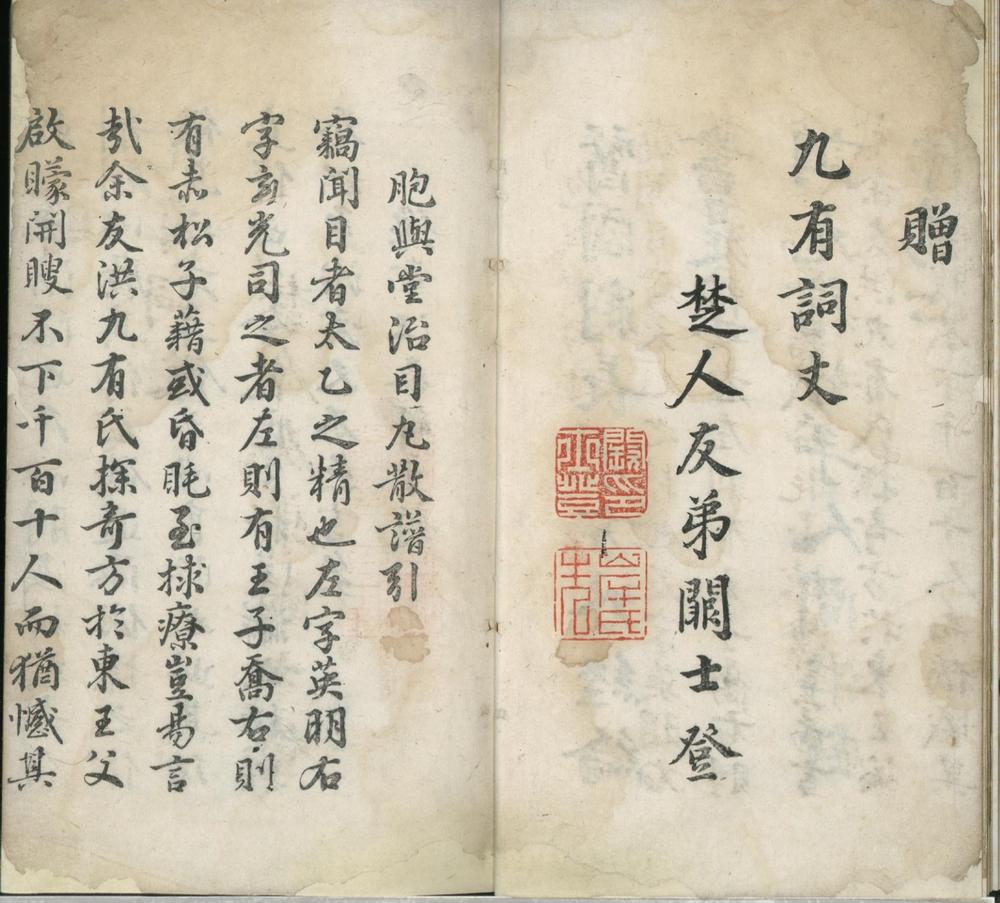 贈
九有詞丈
楚人友弟闞士登
胞與堂治目丸散譜引
竊聞目者太乙之精也左字英明右
字玄光司之者左則有王子喬右則
有赤松子藉或昏眊至捄療豈易言
㢤余友洪九有氏探奇方於東王父
啟矇開瞍不下千百十人而猶憾其